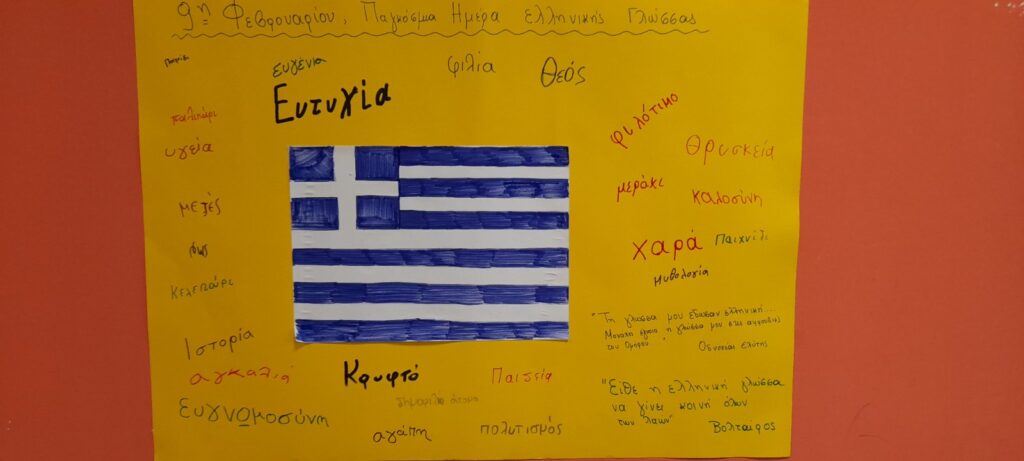 9η Φεβρουαρίου, Παγκόσμια Ημέρα Ελληνικής Γλώσσας
ευγένια
φιλία
Θεός
Ευτυχία
παλικάρι
φιλότιμο
υγεία
Θρησκεία
μεράκι
καλοσύνη
μεζές
χαρά
Παιχνίδι
φως
μυθολογία
κελεπούρι
"Τη γλώσσα μου έδωσαν ελληνική...
Μονάχη έγνοια η γλώσσα μου στις αμμουδιές
του Ομήρου"
Οδυσσέας Ελύτης
Ιστορία
αγκαλιά
Κρυφτό
Παιδεία
"Είθε η ελληνική γλώσσα
να γίνει κοινή όλων
των λαών"
Βολταίρος
Ευγνωμοσύνη
αγάπη
πολιτισμός